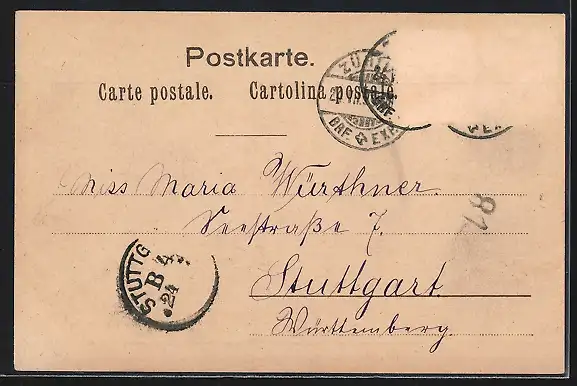 Postkarte.
Carte postale. Cartolina postale.
BRF. EXP.
Miss Maria Würthner.
Seestraße 7.
Stuttgart
Württemberg.
81
STUTTG
B
24